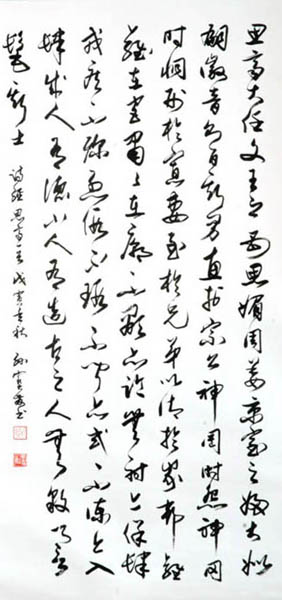 思齊大任文王之母思媚周姜京室之婦大姒
嗣徽音則百斯男惠於宗公神罔時怨神罔
時恫刑於寡妻至於兄弟以御於家邦雝
雝在宮肅肅在廟不顯亦臨無射亦保肆
戎疾不殄烈假不瑕不聞亦式不諫亦入
肆成人有德小人有造古之人無斁譽
髦斯士
詩經思齊一章 戊寅年秋 孫
書